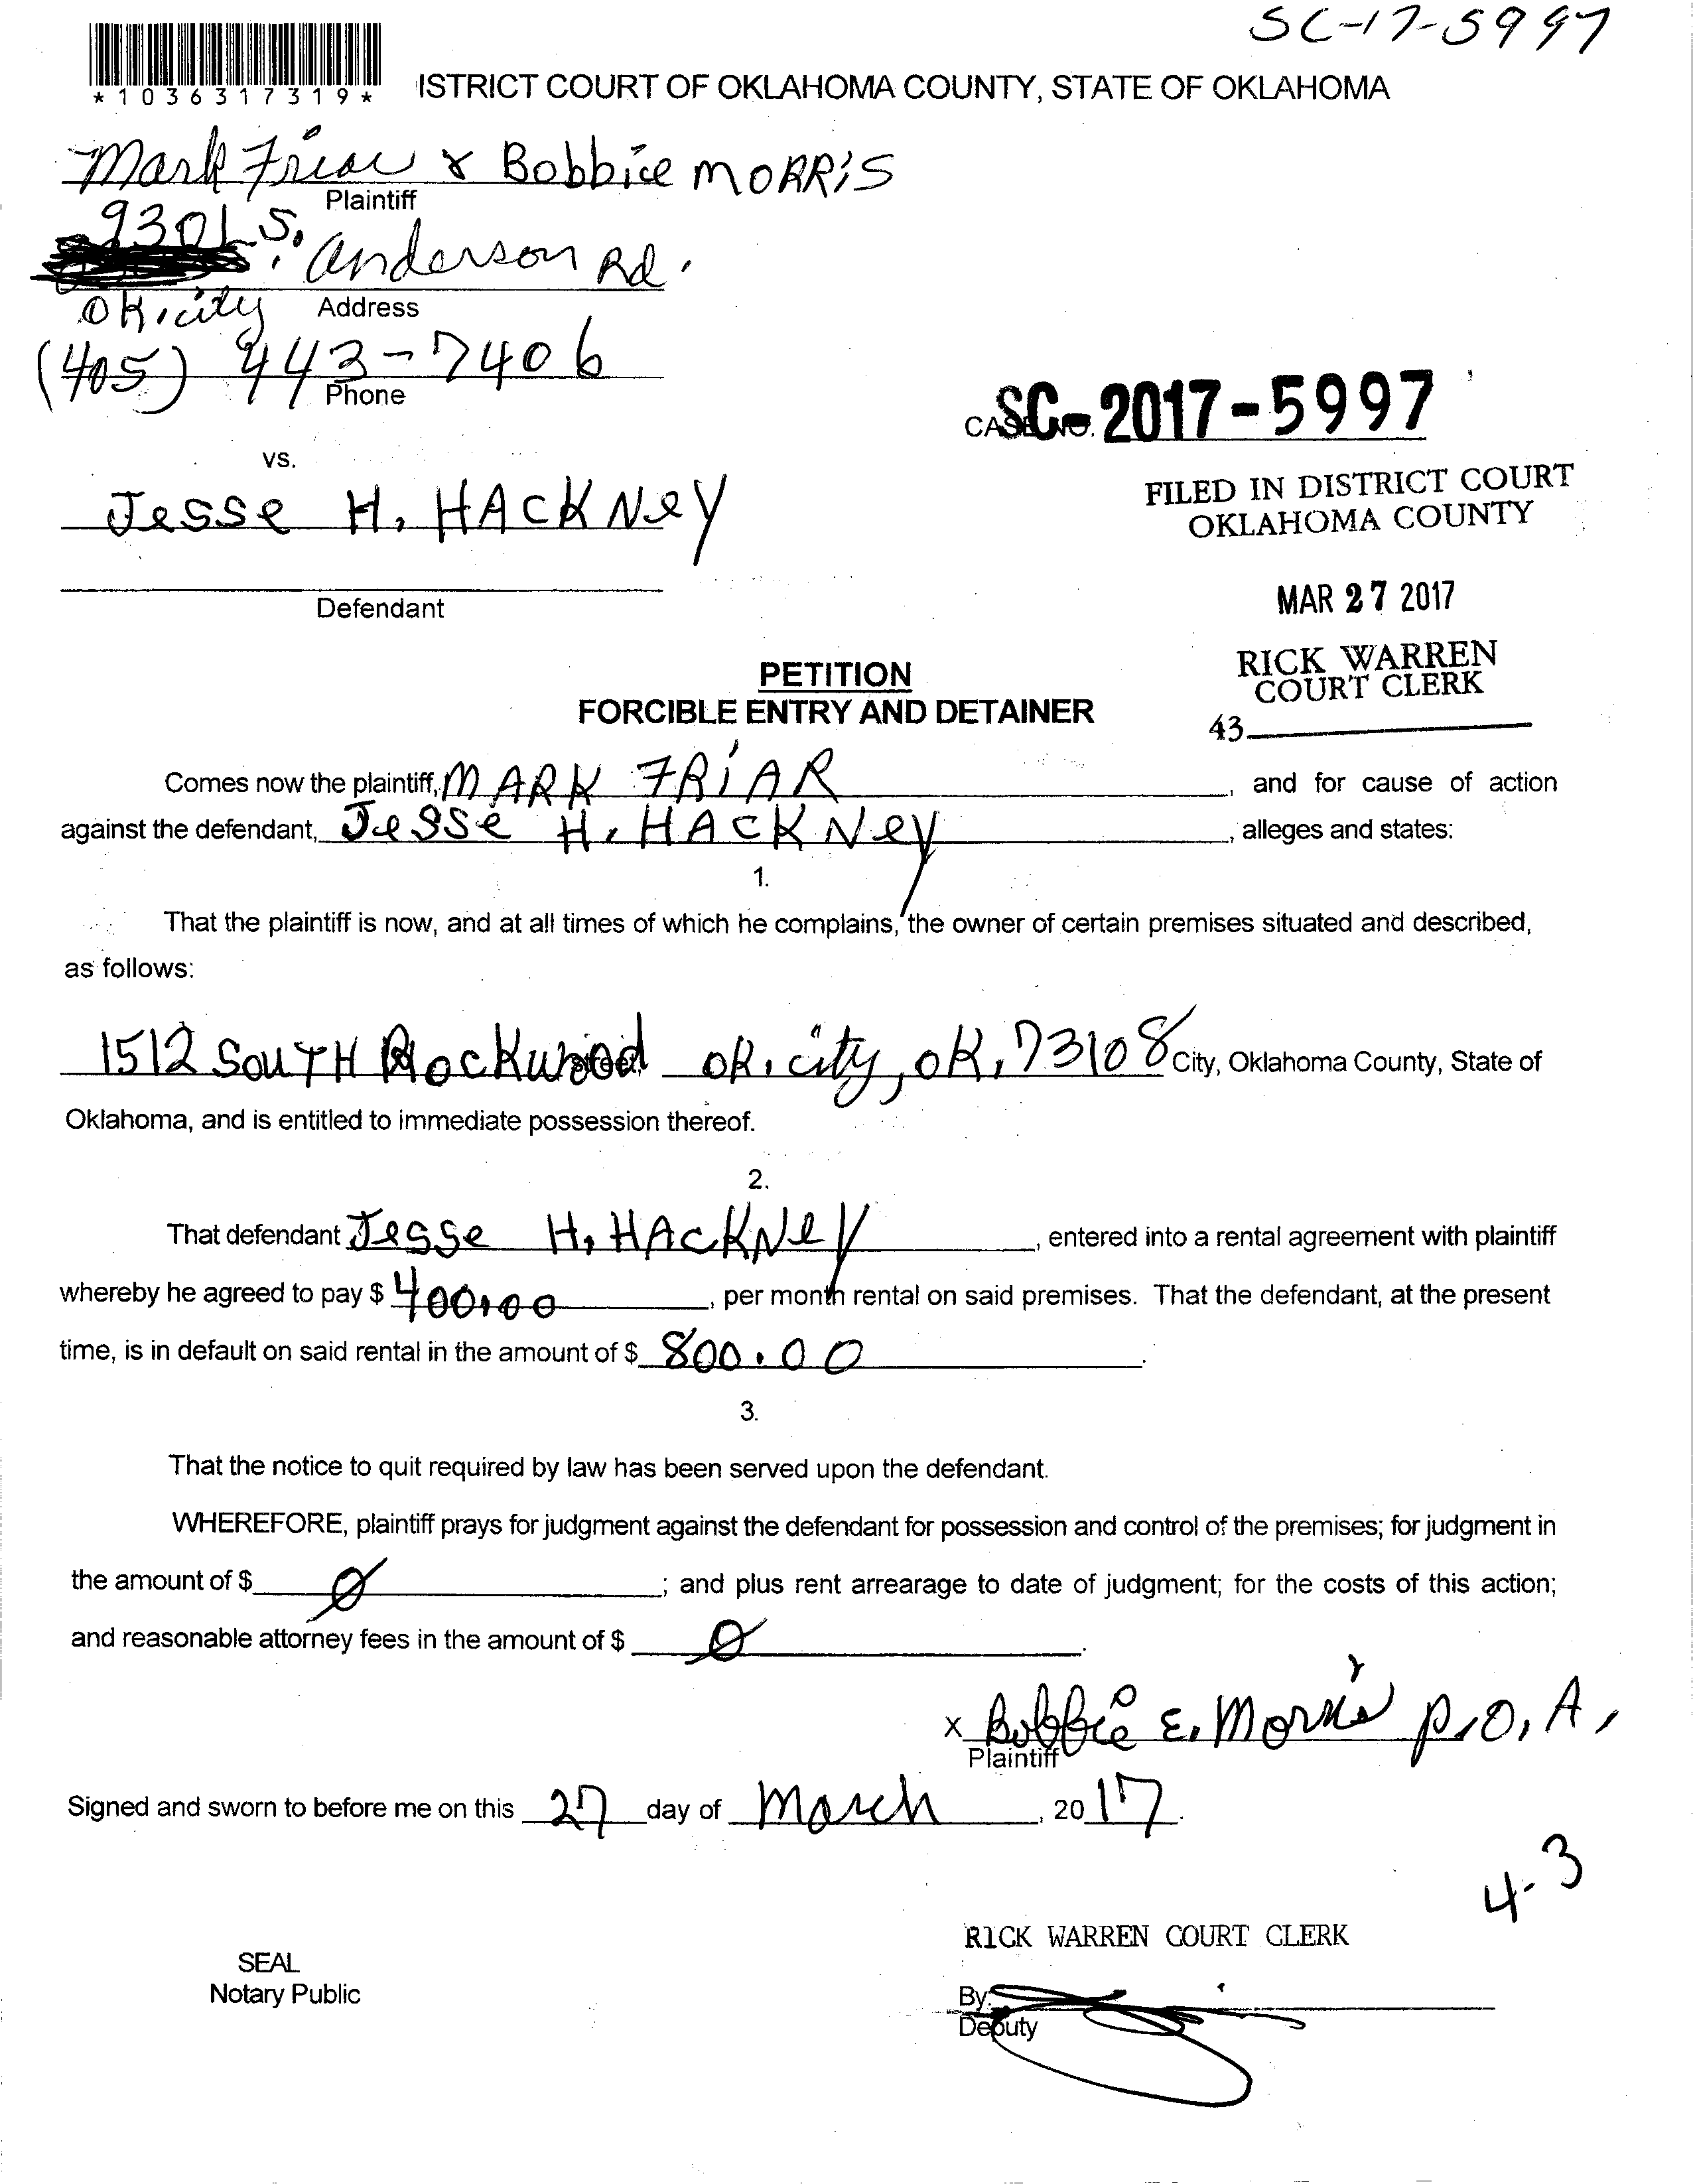 SC-17-5997
*1036317319*
ISTRICT COURT OF OKLAHOMA COUNTY, STATE OF OKLAHOMA
Mark Friar & Bobbie MORRiS
Plaintiff
9301 S. Anderson Rd.
Address
OK. city
(405) 443-7406
Phone
CASE NO. SC-2017-5997
vs.
Jesse H. HACKNey
FILED IN DISTRICT COURT
OKLAHOMA COUNTY
Defendant
MAR 27 2017
RICK WARREN
COURT CLERK
43
PETITION
FORCIBLE ENTRY AND DETAINER
Comes now the plaintiff, MARK FRiAR, and for cause of action
against the defendant, Jesse H. HACKNey, alleges and states:
1.
That the plaintiff is now, and at all times of which he complains, the owner of certain premises situated and described,
as follows:
1512 SOUTH Rockwood OK. city, OK. 73108 City, Oklahoma County, State of
Oklahoma, and is entitled to immediate possession thereof.
2.
That defendant Jesse H. HACKNey, entered into a rental agreement with plaintiff
whereby he agreed to pay $ 400.00, per month rental on said premises. That the defendant, at the present
time, is in default on said rental in the amount of $ 800.00.
3.
That the notice to quit required by law has been served upon the defendant.
WHEREFORE, plaintiff prays for judgment against the defendant for possession and control of the premises; for judgment in
the amount of $ Ø; and plus rent arrearage to date of judgment; for the costs of this action;
and reasonable attorney fees in the amount of $ Ø.
x Bobbie E. Morris P.O.A.
Plaintiff
Signed and sworn to before me on this 27 day of March, 2017.
4-3
RICK WARREN COURT CLERK
SEAL
Notary Public
By:
Deputy